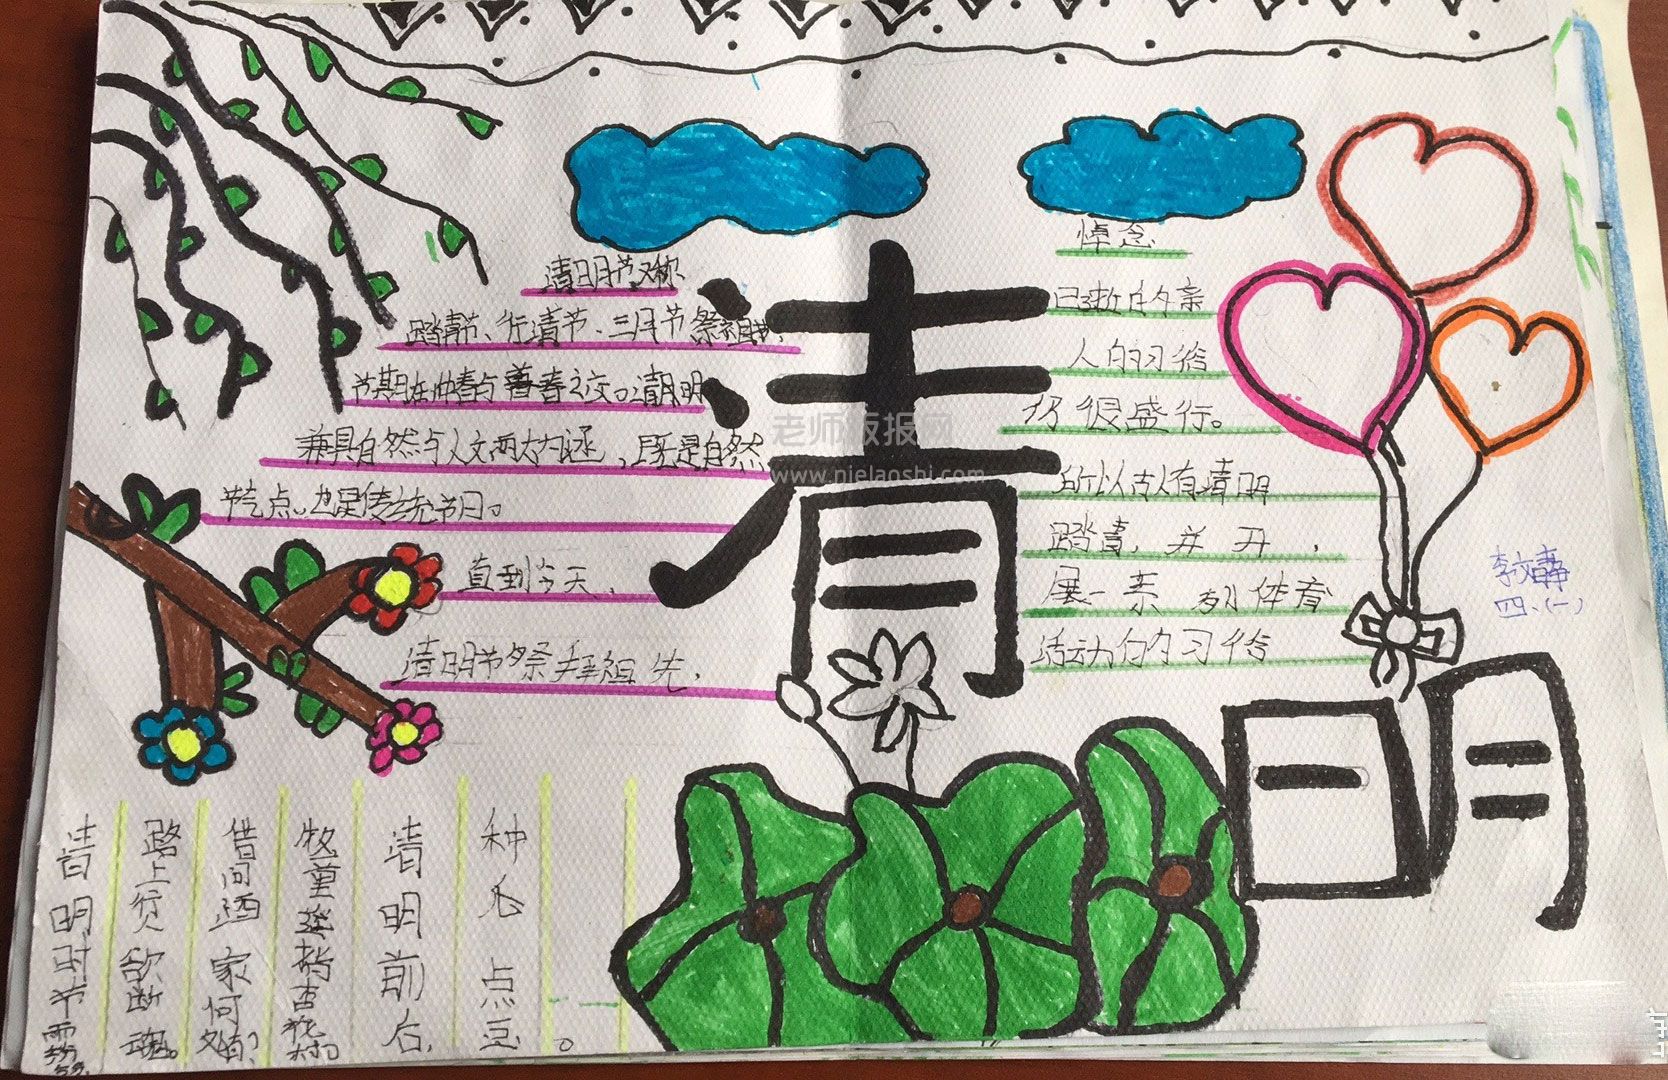 清明节又称
踏青节、行清节、三月节、祭祖节,
节期在仲春与暮春之交。清明
兼具自然与人文两大内涵,既是自然
节气点。也是传统节日。
直到今天,
清明节祭拜祖先,
悼念
已逝的亲
人的习俗
仍很盛行。
所以古人有清明
踏青,并开,
展一系列体育
活动的习俗
清明
李文静
四、(一)
清明时节雨纷纷,
路上行人欲断魂。
借问酒家何处有?
牧童遥指杏花村
清明前后,
种瓜点豆。
老师板报网
www.njelaoshi.com